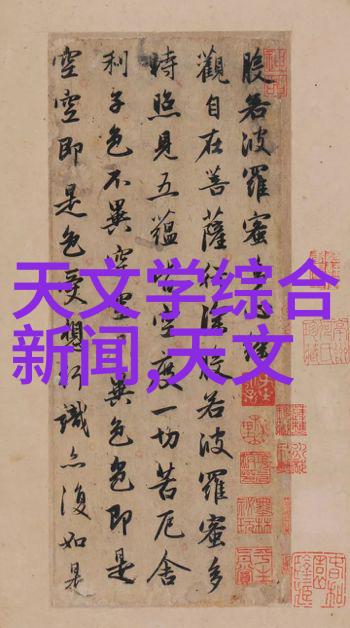 般若波羅蜜多心經
觀自在菩薩行深般若波羅蜜多
時照見五蘊皆空度一切苦厄舍
利子色不異空空不異色色即是
空空即是色受想行識亦復如是
天文学综合
新闻,天文